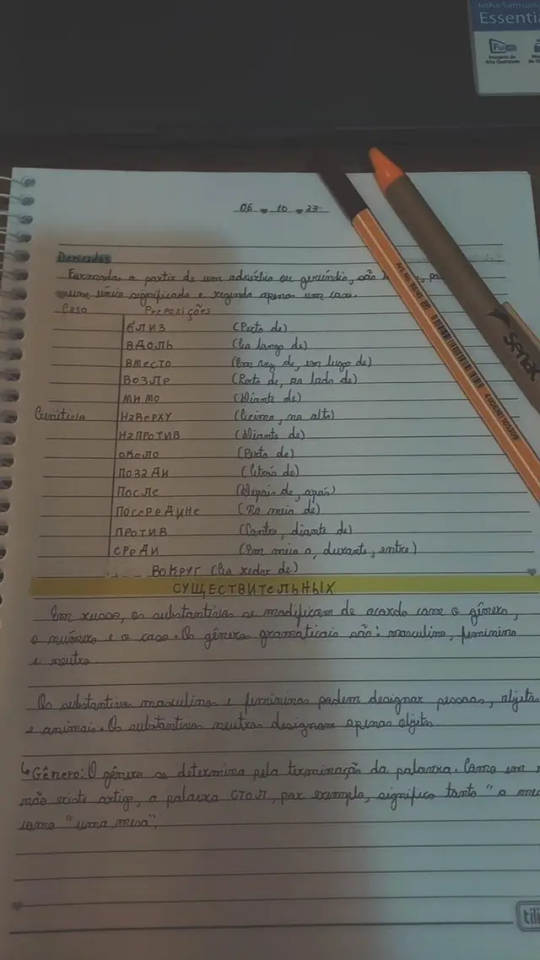 linha Samsung
Essential
06 10 23
Derivadas
Formada a partir de um advérbio ou gerúndio, são
um único significado e regendo apenas um caso.
Caso Preposições
близ (Perto de)
вдоль (Ao longo de)
вместо (Em vez de, em lugar de)
возле (Perto de, ao lado de)
мимо (Diante de)
Genitivo наверху (Acima, no alto)
напротив (Diante de)
около (Perto de)
позади (Atrás de)
после (Depois de, após)
посередине (No meio de)
против (Contra, diante de)
среди (Em meio a, durante, entre)
вокруг (Ao redor de)
СУЩЕСТВИТЕЛЬНЫХ
Em russo, os substantivos se modificam de acordo com o gênero,
o número e o caso. Os gêneros gramaticais são: masculino, feminino
e neutro
Os substantivos masculinos e femininos podem designar pessoas, objetos
e animais. Os substantivos neutros designam apenas objetos.
↳ Gênero: O gênero se determina pela terminação da palavra. Como em
não existe artigo, a palavra стол, por exemplo, significa tanto "a
como "uma mesa".
Senac
tili